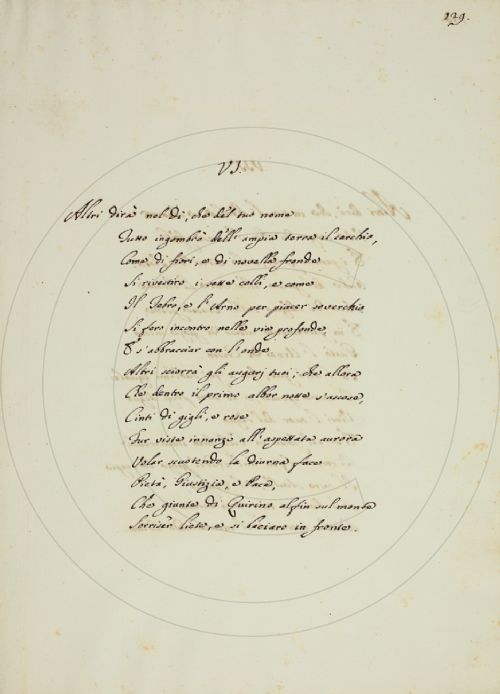 139.
VI.
Altri dirà nel dì, che del tuo nome
Tutto ingombrò dell' ampia terra il cerchio,
Come di fiori, e di novella fronde
Si rivestiro i sette colli, e come
Il Tebro, e l'Arno per piacer soverchio
Si fero incontro nelle vie profonde,
E s'abbracciar con l'onde
Altri sciorrà gli augurj tuoi; che allora
Che dentro il primo albor notte s'ascose,
Cinti di gigli, e rose
Fur viste innanzi all' aspettata aurora
Volar scuotendo la diurna face
Pietà, Giustizia, e Pace,
Che giunte di Quirino alfin sul monte
Sorriser liete, e si baciaro in fronte.